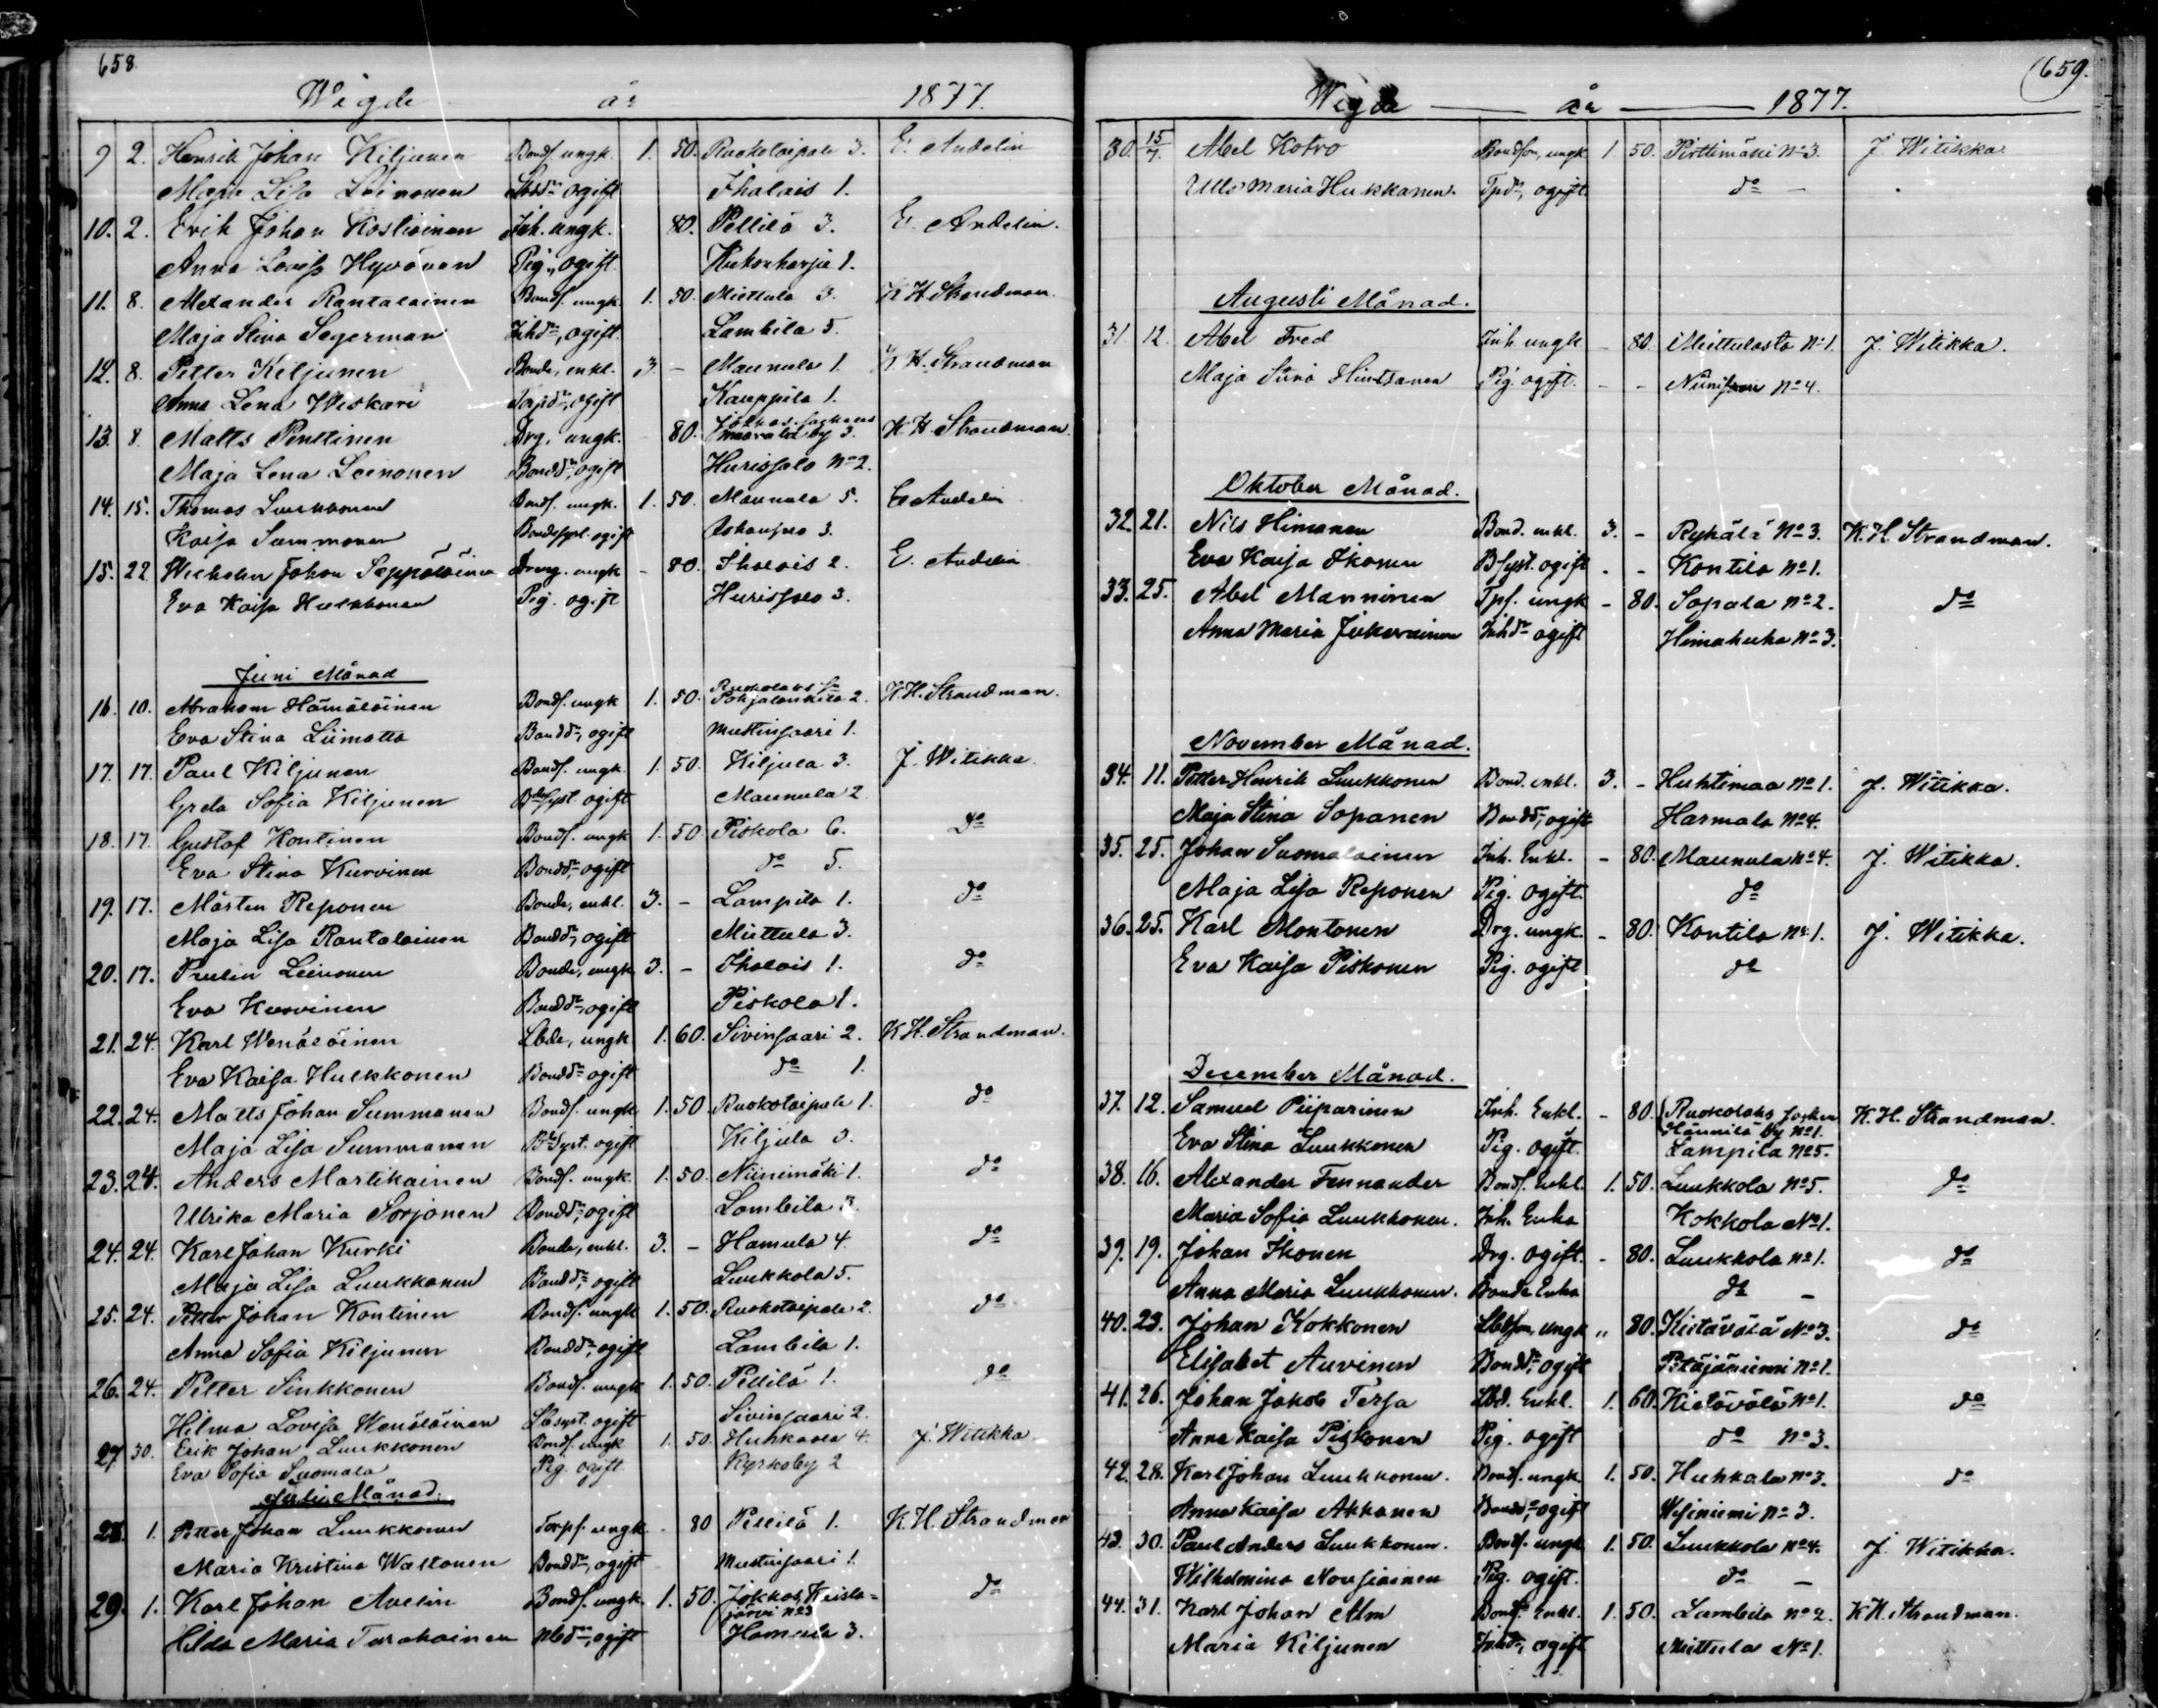 658.
Wigde år 1877.
9 2. Henrik Johan Kiljunen Bonds. ungk. 1. 50. Ruokotaipale 3. E. Andelin
Maja Lisa Leinonen ogift Ihalais 1.
10. 2. Erik Johan Kostiainen Inh. ungk. 80. Pellilä 3. E. Andelin.
Anna Lovisa Hyvönen Pig., ogift Kukonharja 1.
11. 8. Alexander Rantalainen Bonds. ungk. 1. 50. Miettula 3. K H Strandman
Maja Stina Segerman Inhdr, ogift. Lambila 5.
12. 8. Petter Kiljunen Bonde, enkl. 3 - Maunula 1. K. H. Strandman
Anna Lena Wiskari Torpdr, ogift Kauppila 1.
13. 8. Matts Penttinen Drg. ungk. 80. by 3. K. H. Strandman
Maja Lena Leinonen Bonddr, ogift Hurissalo No 2.
14. 15. Thomas Luukkonen Bonds. ungk. 1. 50. Maunula 5. E Andelin
Kaisa Summanen Bondesyst. ogift 3.
15. 22. Wilhelm Johan Seppäläinen Dreng. ungk - 80. Ihalais 2. E. Andelin
Eva Kaisa Hulkkonen Pig. ogift Hurissalo 3.
Juni Månad
16. 10. Abraham Hämäläinen Bonds. ungk 1. 50. Ruokolaks Pohjalankila 2. K. H. Strandman.
Eva Stina Liimatta Bonddr, ogift Mustinsaari 1.
17. 17. Paul Kiljunen Bonds. ungk. 1. 50. Kiljula 3. J. Witikka.
Greta Sofia Kiljunen Bdesyst. ogift Maunula 2
18. 17. Gustaf Kontinen Bonds. ungk 1. 50 Piskola 6. do
Eva Stina Kurvinen Bonddr, ogift do 5.
19. 17. Mårten Reponen Bonde, enkl. 3. - Lampila 1. do
Maja Lisa Rantalainen Bonddr, ogift Miettula 3.
20. 17. Paulin Leinonen Bonde, ungk 3. - Ihalais 1. do
Eva Kurvinen Bonddr, ogift Piskola 1.
21. 24. Karl Wenäläinen Lbde, ungk 1. 60. Sivinsaari 2. K H. Strandman.
Eva Kaisa Hulkkonen Bonddr ogift do 1.
22. 24. Matts Johan Summanen Bonds. ungk 1. 50 Ruokotaipale 1. do
Maja Lisa Summanen Bdesyst. ogift Kiljula 3.
23. 24. Anders Martikainen Bonds. ungk. 1. 50. Niinimäki 1. do
Ulrika Maria Sorjonen Bonddr, ogift Lambila 3.
24. 24. Karl Johan Kurki Bonde, enkl. 3. - Hamula 4. do
Maja Lisa Luukkonen Bonddr, ogift Luukkola 5.
25. 24. Petter Johan Kontinen Bonds. ungk 1. 50. Ruokotaipale 2. do
Anna Sofia Kiljunen Bonddr, ogift Lambila 1.
26. 24. Petter Sinkkonen Bonds. ungk 1. 50. Pellilä 1. do
Hilma Lovisa Wenäläinen Lbsyst. ogift Sivinsaari 2.
27 30. Erik Johan Luukkonen Bonds. ungk 1. 50. Huhkala 4. J. Witikka
Eva Sofia Suomala Pig. ogift Kyrkoby 2
Juli Månad.
28. 1. Petter Johan Luukkonen Torps. ungk. - 80 Pellilä 1. K. H. Strandman
Maria Kristina Waltonen Bonddr, ogift Mustinsaari 1.
29. 1. Karl Johan Avelin Bonds. ungk. 1. 50. Jokkas, Kuisla=järvi No 3 do
Hilda Maria Turakainen ogift Hamula 3.
659.
Wigde år 1877.
30. 15/7. Abel Kotro Bondson, ungk 1. 50. Pirttimäki No 3. J. Witikka.
Ulla Maria Hukkanen. Tpdr, ogift. do -
Augusti Månad.
31. 12. Abel Fred Inh. ungk - 80. Miettulasta No 1. J. Witikka.
Maja Stina Hintsanen Pig. ogift. - - Niinisaari No 4.
Oktober Månad.
32. 21. Nils Himanen Bond. enkl. 3. - Rykälä No 3. K. H. Strandman.
Eva Kaisa Ikonen Bsyst. ogift - - Kontila No 1.
33. 25. Abel Manninen Tps. ungk - 80. Sopala No 2. do
Anna Maria Jukarainen Inhdr ogift Himahuha No 3.
November Månad.
34. 11. Petter Henrik Luukkonen Bond. enkl. 3. - Huhtimaa No 1. J. Witikka.
Maja Stina Sopanen Bonddr, ogift Harmala No 4.
35. 25. Johan Suomalainen Inh. Enkl. - 80. Maunula No 4. J. Witikka.
Maja Lisa Reponen Pig. ogift. do
36. 25. Karl Montonen Drg. ungk. - 80. Kontila No 1. J. Witikka.
Eva Kaisa Piskonen Pig. ogift do
December Månad.
37. 12. Samuel Piiparinen Inh. Enkl. - 80. Ruokolaks Socken by No 1. K. H. Strandman.
Eva Stina Luukkonen Pig. ogift. Lampila No 5.
38. 16. Alexander Fennander Bonds. Enkl. 1. 50. Luukkola No 5. do
Maria Sofia Luukkonen. Inh. Enka Kokkola No 1.
39. 19. Johan Ikonen Drg. ogift. - 80. Luukkola No 1. do
Anna Maria Luukkonen. Bonde Enka do -
40. 23. Johan Kokkonen Lbdson, ungk " 80. Kietävälä No 3. do
Elisabet Auvinen Bonddr, ogift Pitäjäniemi No 1.
41. 26. Johan Jakob Tersa Lbd. Enkl. 1. 60. Kietävälä No 1. do
Anna Kaisa Piskonen Pig. ogift do No 3.
42. 28. Karl Johan Luukkonen. Bonds. ungk 1. 50. Huhkala No 3. do
Anna Kaisa Akkanen Bonddr ogift Wesiniemi No 3.
43. 30. Paul Anders Luukkonen. Bonds. ungk 1. 50. Luukkola No 4. J. Witikka.
Wilhelmina Nousiainen Pig. ogift. do -
44. 31. Karl Johan Alm Bonds. Enkl. 1. 50. Lambila No 2. K H. Strandman.
Maria Kiljunen Inhdr, ogift Miettula No 1.